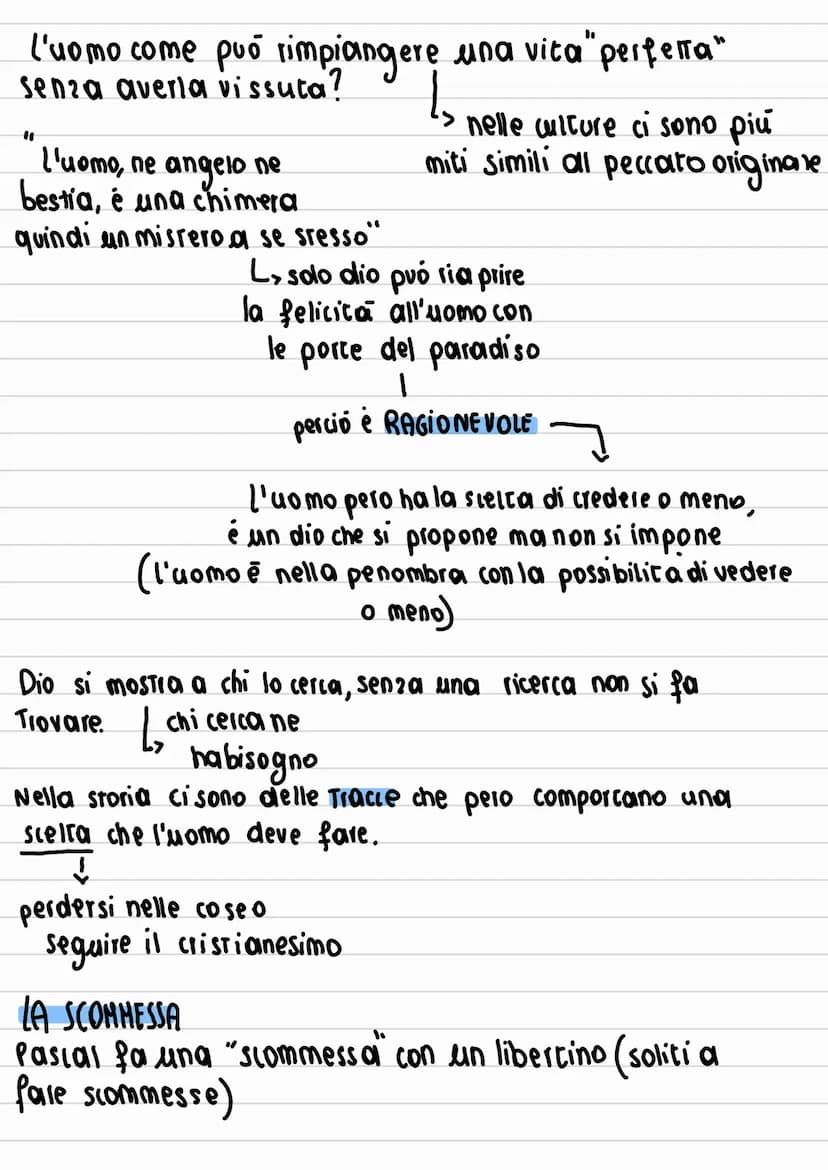 L'uomo come può rimpiangere una vita "perfetta"
senza averla vissuta?
↳ nelle culture ci sono più
miti simili al peccato originare
"L'uomo, ne angelo ne
bestia, é una chimera
quindi un mistero a se stesso"
↳ solo dio può riaprire
la felicità all'uomo con
le porte del paradiso
perció è RAGIONEVOLE
l'uomo pero ha la scelta di credere o meno,
é un dio che si propone ma non si impone
(l'uomo è nella penombra con la possibilità di vedere
o meno)
Dio si mostra a chi lo cerca, senza una ricerca non si fa
Trovare.
↳ chi cerca ne
ha bisogno
Nella storia ci sono delle Tracce che pero comportano una
scelta che l'uomo deve fare.
↓
perdersi nelle cose o
seguire il cristianesimo
LA SCOMMESSA
Pascal fa una "scommessa" con un libertino (soliti a
fare scommesse)